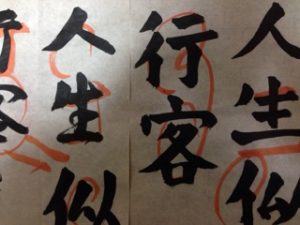 人生似
行客
人生似
行客